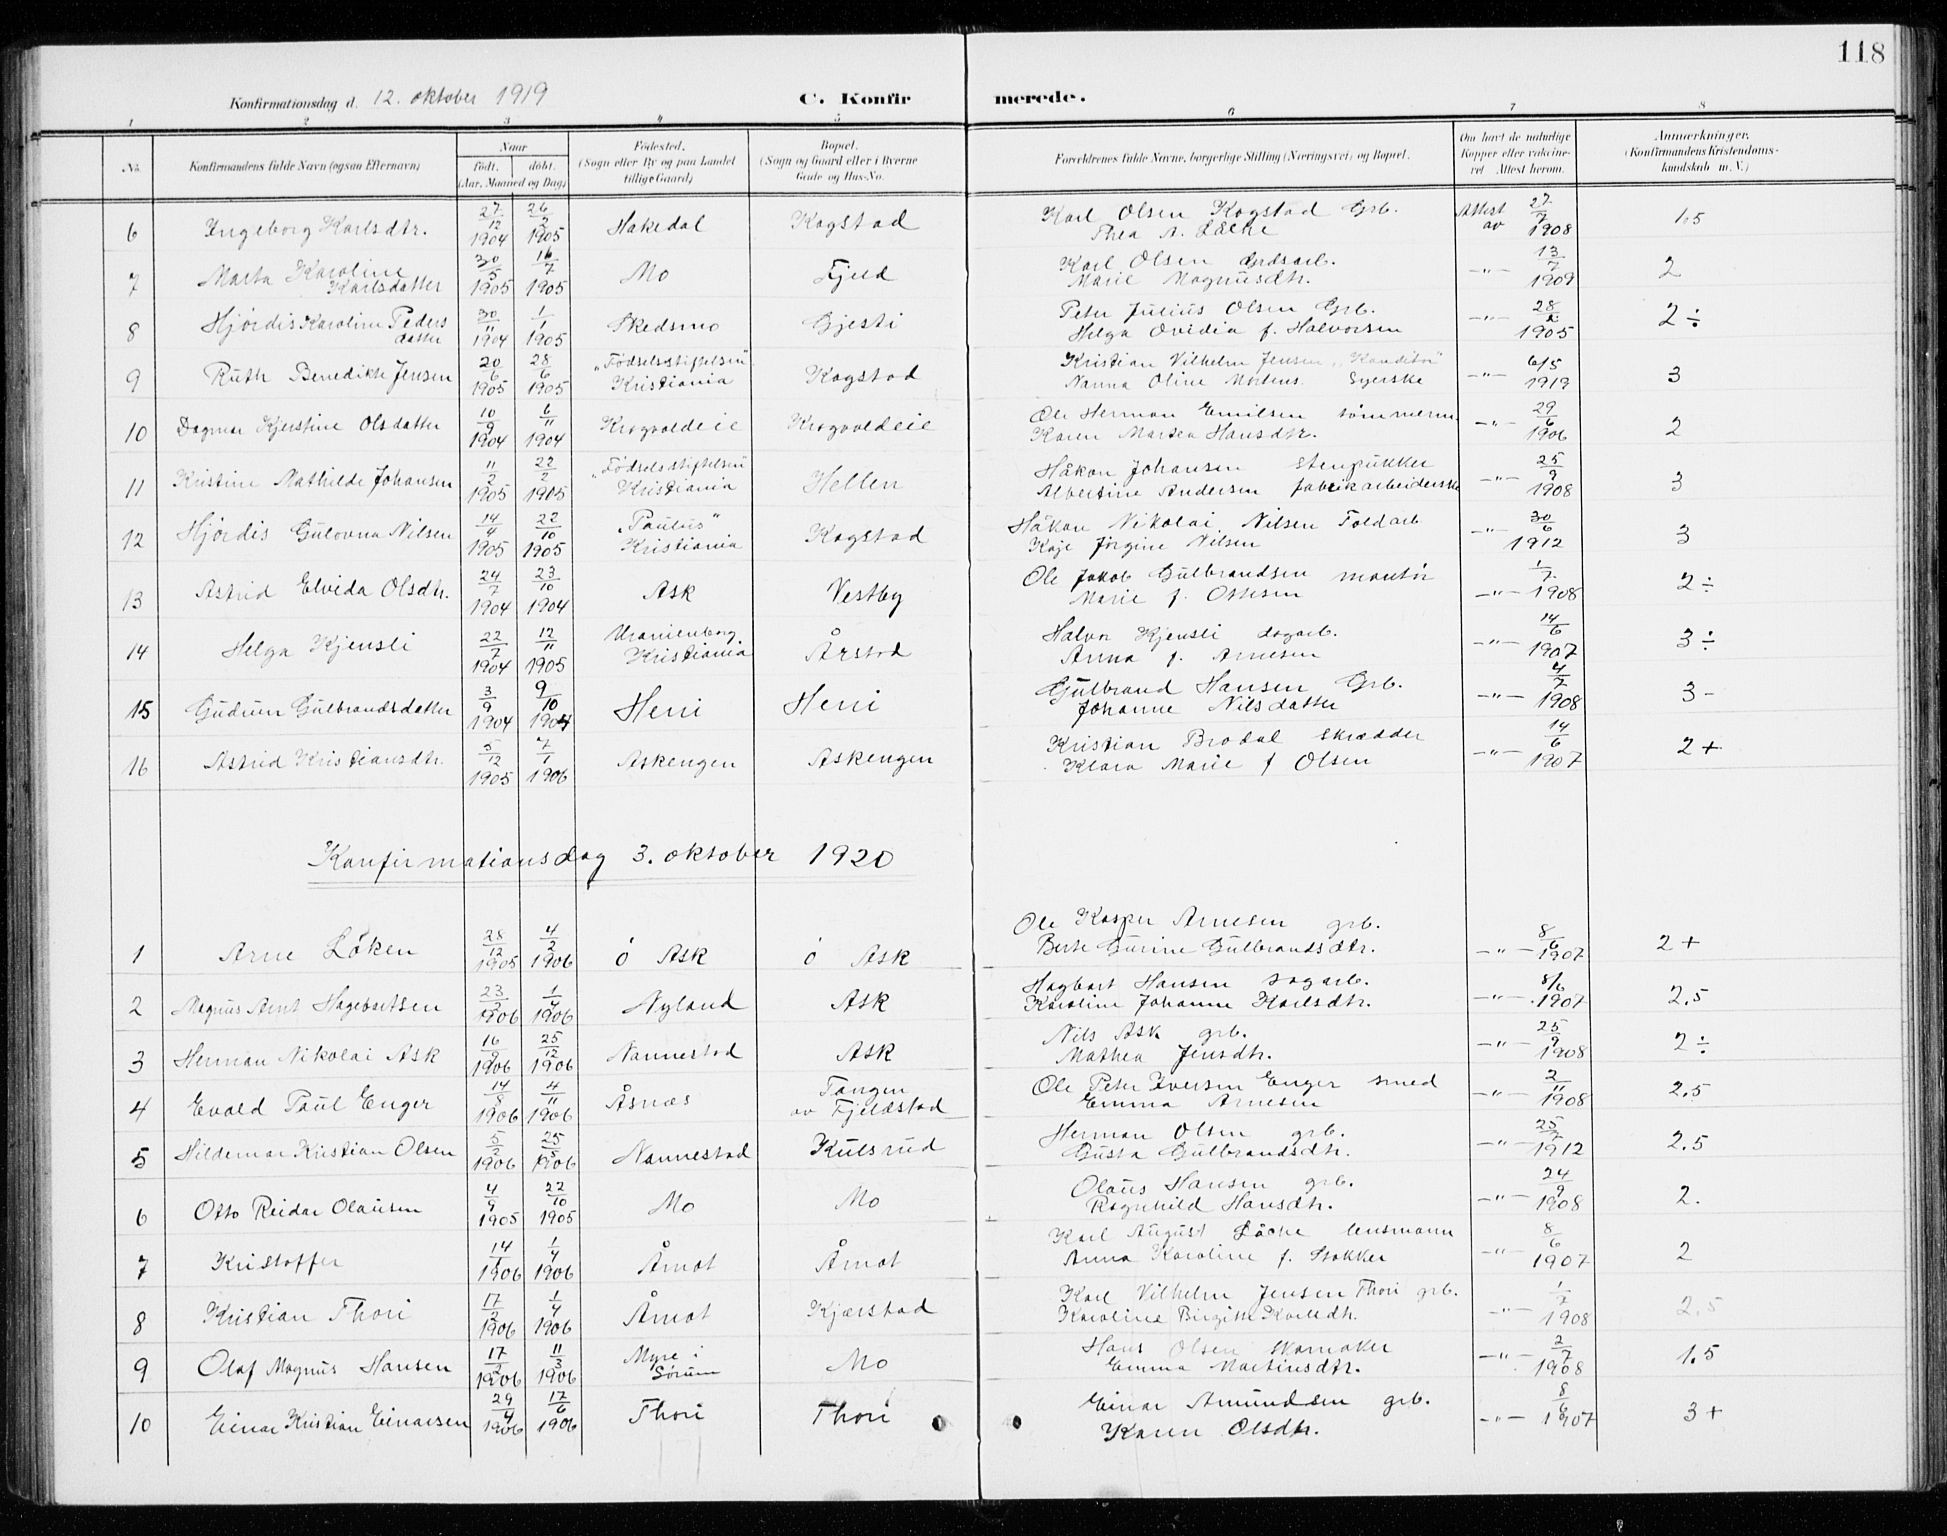 118
Konfirmationsdag d. 12. oktober 1919 C. Konfirmerede.
1 2 3 4 5 6 7 8
No. Konfirmandens fulde Navn (ogsaa Efternavn) Naar født. døbt. (Aar, Maaned og Dag) Fødested. (Sogn eller By og paa Landet tillige Gaard) Bopæl. (Sogn og Gaard eller i Byerne Gade og Hus-No. Forældrenes fulde Navne, borgerlige Stilling (Næringsvei) og Bopæl. Om havt de naturlige Kopper eller vakcineret. Attest herom. Anmærkninger. (Konfirmandens Kristendomskundskab m. V.)
6 Ingeborg Karlsdtr. 27/12 1904 26/2 1905 Hakedal Kogstad Karl Olsen Kogstad Grb. Attest av 27/7 1908 1,5
Thea A. Låche
7 Marta Karoline Karlsdatter 30/5 1905 16/7 1905 Mo Fjeld Karl Olsen Grdsarb. -"- 13/7 1909 2
Marie Magnusdtr.
8 Hjørdis Karoline Pedersdatter 30/11 1904 1/1 1905 Skedsmo Gjesti Peter Julius Olsen Grb. -"- 28/ 1905 2 ÷
Helga Ovidia f. Halvorsen
9 Ruth Benedikte Jensen 20/6 1905 28/6 1905 "Fødselsstiftelsen" Kristiania Kogstad Kristian Vilhelm Jensen "Konditor" -"- 6/5 1919 3
Nanna Oline Mortens. Syerske
10 Dagmar Kjerstine Olsdatter 10/9 1904 6/11 1904 Krogvoldeie Krogvoldeie Ole Herman Emilsen tømmerm. -"- 29/6 1906 2
Karen Martea Hansdtr.
11 Kristine Mathilde Johansen 11/2 1905 22/2 1905 "Fødselsstiftelsen" Kristiania Hellen Håkon Johansen stenpukker -"- 25/9 1908 3
Albertine Andersen fabrikarbeiderske
12 Hjørdis Gulovna Nilsen 14/4 1905 22/10 1905 "Paulus" Kristiania Kogstad Håkon Nikolai Nilsen Toldarb -"- 30/6 1912 3
Kaje Jørgine Nilsen
13 Astrid Elvida Olsdtr. 24/7 1904 23/10 1904 Ask Vestby Ole Jakob Gulbrandsen montør -"- 1/7 1908 2 ÷
Marie f. Ottesen
14 Helga Kjensli 22/7 1904 12/11 1905 Uranienborg Kristiania Årstad Halvor Kjensli dagarb. -"- 14/6 1907 3 ÷
Anna f. Arnesen
15 Gudrun Gulbrandsdatter 3/9 1904 9/10 1904 Heni Heni Gulbrand Hansen Grb. -"- 4/7 1908 3 -
Johanne Nilsdatter
16 Astrid Kristiansdtr. 5/12 1905 7/1 1906 Askengen Askengen Kristian Brodal skrædder -"- 14/6 1907 2 +
Klara Marie f Olsen
Konfirmationsdag 3. oktober 1920
1 Arne Løken 28/12 1905 4/2 1906 Ø Ask Ø Ask Ole Kasper Arnesen grb. -"- 8/6 1907 2 +
Berte Gurine Gulbrandsdtr.
2 Magnus Arnt Hagebartsen 23/2 1906 1/4 1906 Nyland Ask Hagbart Hansen dagarb. -"- 8/6 1907 2.5
Karoline Johanne Karlsdtr.
3 Herman Nikolai Ask 16/9 1906 25/12 1906 Nannestad Ask Nils Ask grb. -"- 25/9 1908 2 ÷
Mathea Jensdtr.
4 Evald Paul Enger 14/8 1906 4/11 1906 Åsnæs Tangen av Fjeldstad Ole Peter Iversen Enger smed -"- 2/11 1908 2,5
Emma Arnesen
5 Hildemar Kristian Olsen 5/2 1906 25/5 1906 Nannestad Kulsrud Herman Olsen grb. -"- 25/7 1912 2.5
Gusta Gulbrandsdtr.
6 Otto Reidar Olausen 4/9 1905 22/10 1905 Mo Mo Olaus Hansen grb. -"- 24/9 1908 2.
Ragnhild Hansdtr.
7 Kristoffer 14/1 1906 1/4 1906 Årnot Årnot Karl August Låche lensmann -"- 8/6 1907 2
Anna Karoline f. Stokker
8 Kristian Thori 17/2 1906 1/4 1906 Årnot Kjærstad Karl Vilhelm Jensen Thori grb. -"- 1/7 1908 2.5
Karoline Birgitte Karlsdtr.
9 Olaf Magnus Hansen 17/2 1906 11/3 1906 Myre i Sørum Mo Hans Olsen skomaker -"- 2/7 1908 1.5
Emma Martinsdtr.
10 Einar Kristian Einarsen 29/4 1906 17/6 1906 Thori Thori Einar Amundsen grb. -"- 8/6 1907 3 +
Karen Olsdtr.